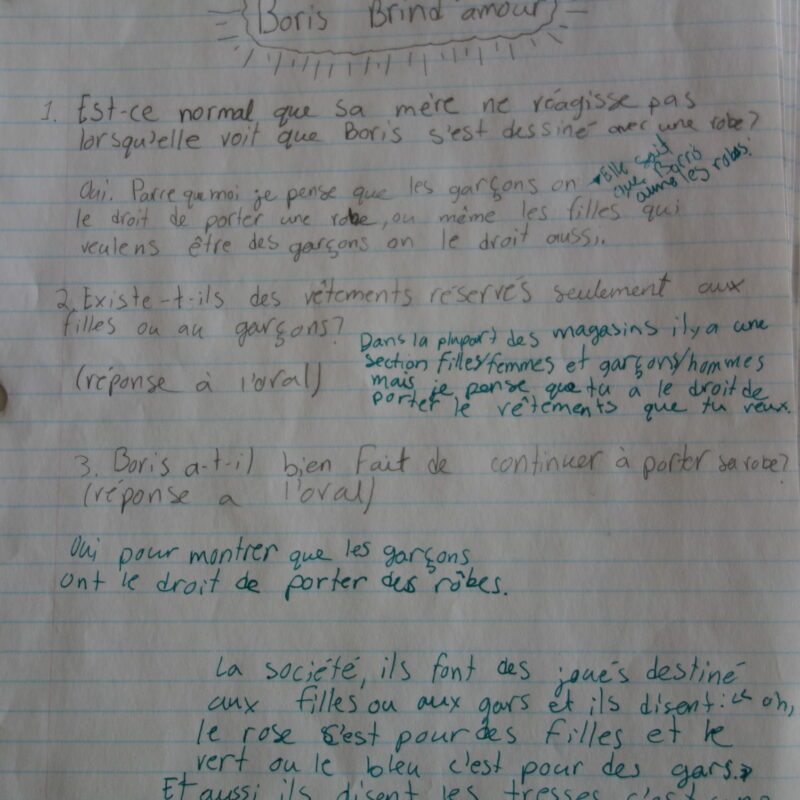 Boris Brind'amour
1. Est-ce normal que sa mère ne réagisse pas
lorsqu'elle voit que Boris s'est dessiné avec une robe?
Oui. Parce que moi je pense que les garçons on
le droit de porter une robe, ou même les filles qui
veulens être des garçons on le droit aussi.
Elle sait
que Boris
aime les robes.
2. Existe-t-ils des vêtements réservés seulement aux
filles ou au garçons?
(réponse à l'oral)
Dans la plupart des magasins il y a une
section filles/femmes et garçons/hommes
mais je pense que tu a le droit de
porter le vêtements que tu veux.
3. Boris a-t-il bien fait de continuer à porter sa robe?
(réponse a l'oral)
Oui pour montrer que les garçons
ont le droit de porter des rôbes.
La société, ils font des joués destiné
aux filles ou aux gars et ils disent: « oh,
le rose c'est pour des filles et le
vert ou le bleu c'est pour des gars.»
Et aussi ils disent les tresses c'est